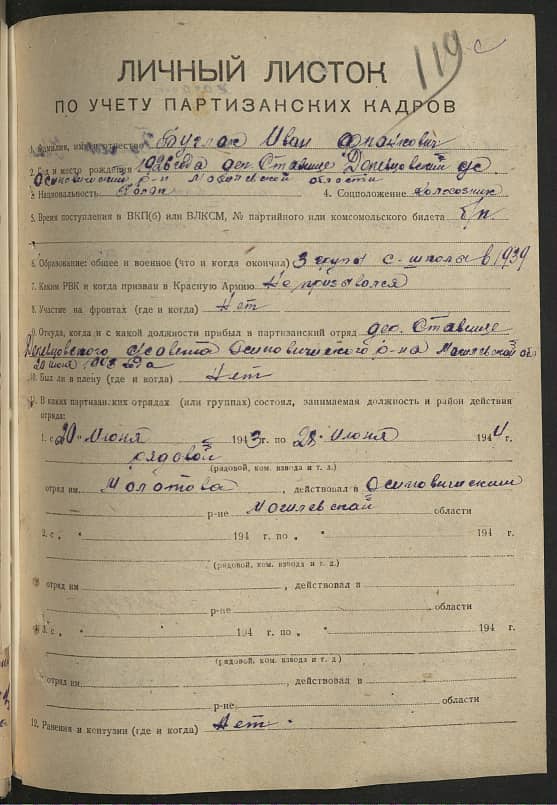 119 с
ЛИЧНЫЙ ЛИСТОК
ПО УЧЕТУ ПАРТИЗАНСКИХ КАДРОВ
1. Фамилия, имя и отчество Иван
2. Год и место рождения 1926 года дер. Ставище с/с
Осиповичский р-н Могилевской области
3. Национальность 4. Соцположение Колхозник
5. Время поступления в ВКП(б) или ВЛКСМ, № партийного или комсомольского билета б/п
6. Образование: общее и военное (что и когда окончил) 3 группы с-школы в 1939
7. Каким РВК и когда призван в Красную Армию Не призывался
8. Участие на фронтах (где и когда) Нет
9. Откуда, когда и с какой должности прибыл в партизанский отряд дер. Ставище
с/совета Осиповичского р-на Могилевской об
20 июня 1943 года
10. Был ли в плену (где и когда) Нет
11. В каких партизанских отрядах (или группах) состоял, занимаемая должность и район действия
отряда:
1. с „20 “ Июня 1943 г. по „28 “ Июня 1944 г.
рядовой
(рядовой, ком. взвода и т. д.)
отряд им. Молотова, действовал в Осиповичским
р-не Могилевской области
2. с „ “ 194 г. по „ “ 194 г.
(рядовой, ком. взвода и т. д.)
отряд им , действовал в
р-не области
3. с „ “ 194 г. по „ “ 194 г.
(рядовой, ком. взвода и т. д.)
отряд им. , действовал в
р-не области
12. Ранения и контузии (где и когда) Нет.